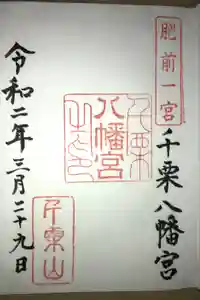 肥前一宮
千栗八幡宮
千栗
八幡宮
之印
千栗山
令和二年三月二十九日